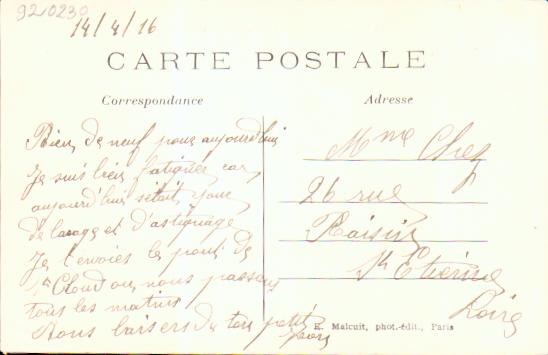 920230
14/4/16
CARTE POSTALE
Correspondance
Adresse
Rien de neuf pour aujourd'hui
Je suis bien fatiguée car
aujourd'hui sétait jour
de lavage et d'astiquage
Je t'envoies le pont de
St Cloud ou nous passons
tous les matins
Bons baisers de ton petit
Mme Chez
26 rue
Raisin
St Etienne
Loire
E. Malcuit, phot.-édit., Paris